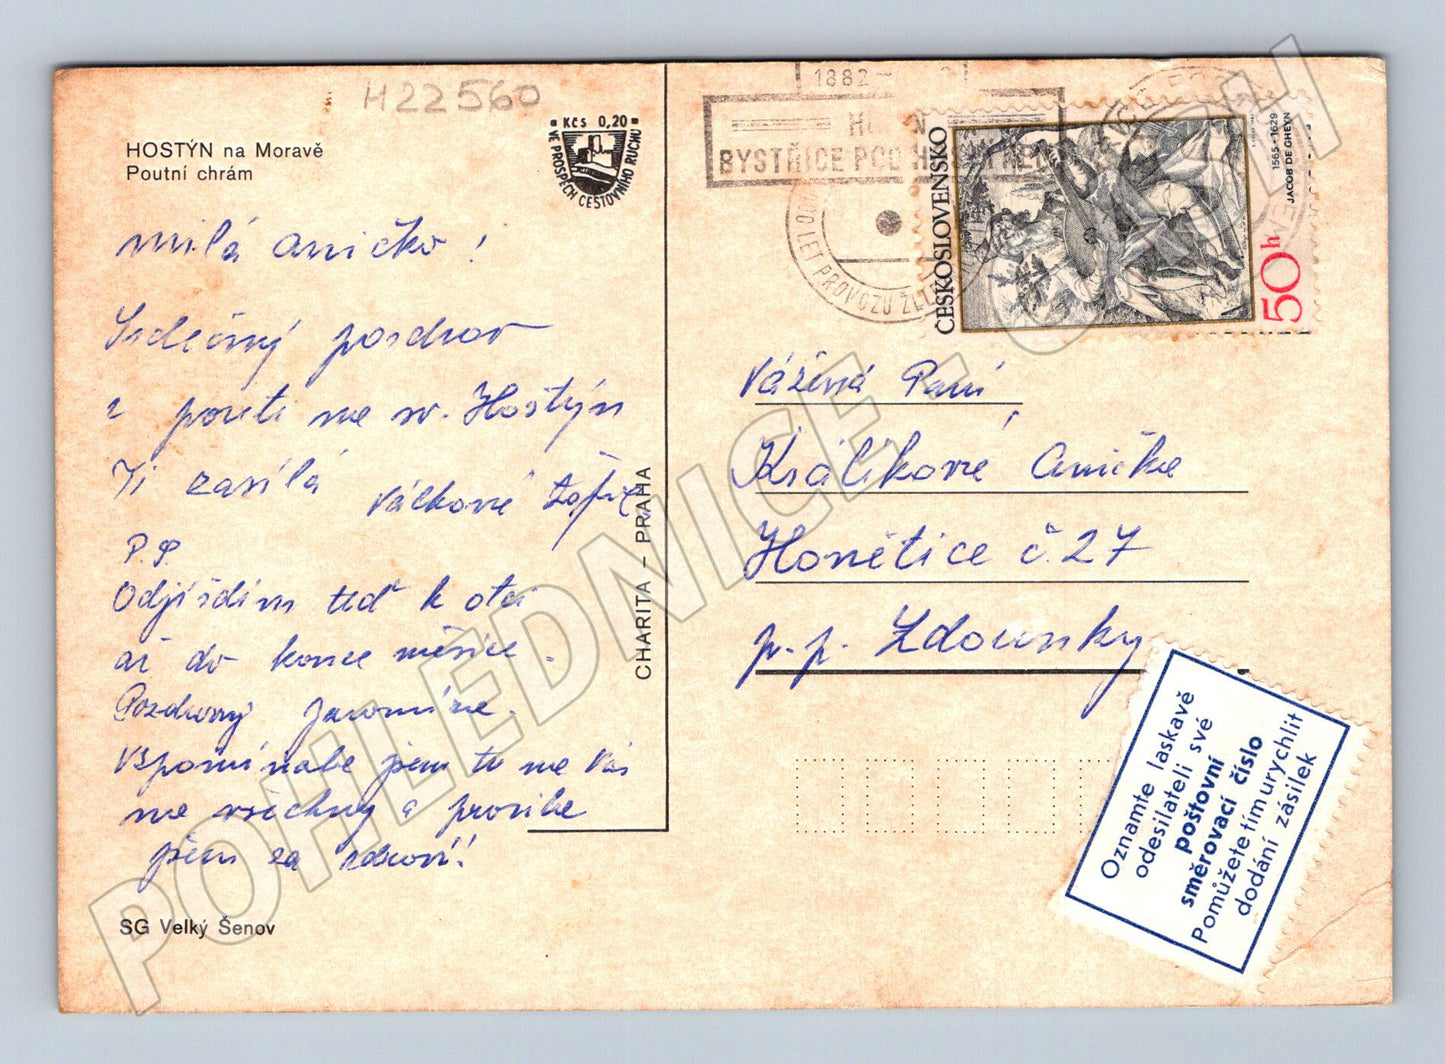 H22560
HOSTÝN na Moravě
Poutní chrám
Kčs 0,20
VE PROSPĚCH CESTOVNÍHO RUCHU
milá Aničko!
Srdečný pozdrav
z pouti na sv. Hostýn
Ti zasílá Válková Žofie
P.P.
Odjíždím teď k otci
až do konce měsíce.
Pozdravy Jaromíra.
Vspomínala jsem tu na Vás
na všechny a prosila
jsem za zdraví!
SG Velký Šenov
CHARITA – PRAHA
1882
BYSTŘICE POD
LET PROVOZU
ČESKOSLOVENSKO
1565-1629
JACOB DE GHEYN
50h
Vážená Paní
Králíková Anička
Honětice č. 27
p.p. Zdounky
Oznamte laskavě
odesilateli své
poštovní
směrovací číslo
Pomůžete tím urychlit
dodání zásilek
POHLEDNICE